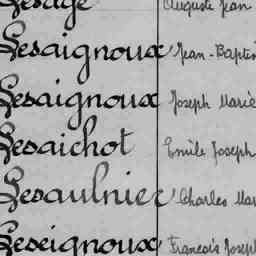 Lesage Auguste Jean
Lesaignoux Jean-Baptis
Lesaignoux Joseph Marie
Lesaichot Emile Joseph
Lesaulnier Charles Mar
Leseignoux François Joseph